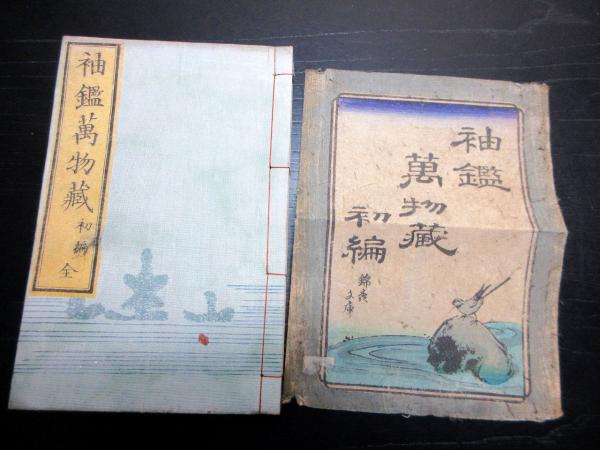 袖鑑萬物藏
初編
全
袖鑑
萬物藏
初編
文庫